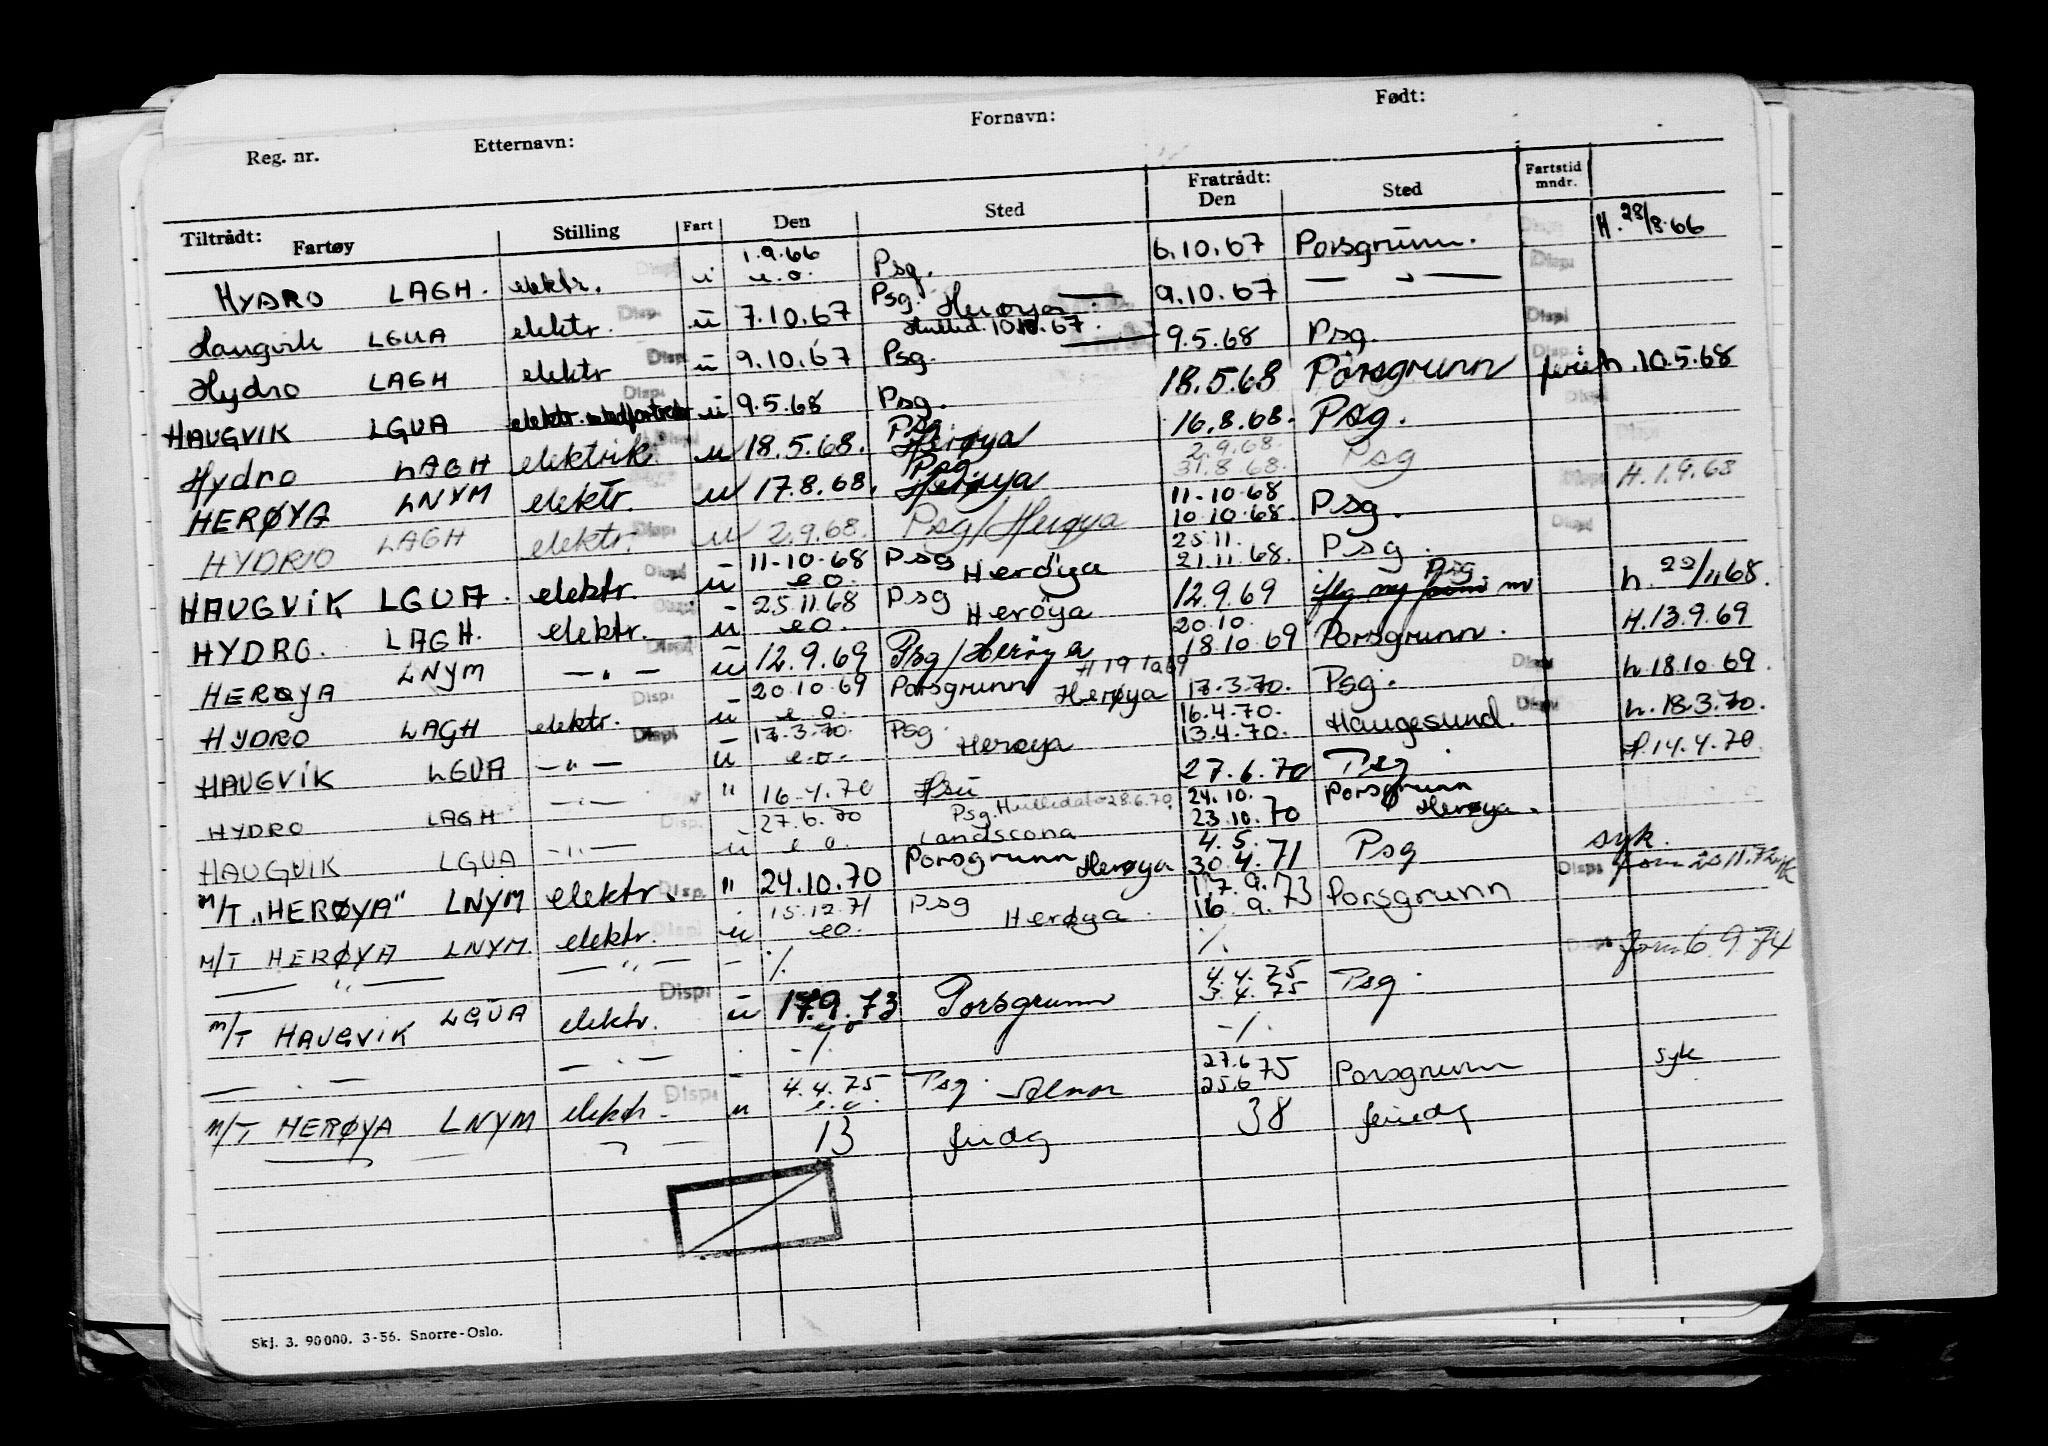 Reg. nr. Etternavn: Fornavn: Født:
Tiltrådt: Fartøy Stilling Fart Den Sted Fratrådt: Den Sted Fartstid mndr.
HYDRO LAGH. elektr. Disp. u 1.9.66 e.o. Psg. 6.10.67 Porsgrunn. Disp. H. 28/8.66
Haugvik LGUA elektr. Disp. u 7.10.67 Psg. Herøya 9.10.67 — " — Disp.
Hydro LAGH elektr Disp. u 9.10.67 Psg. Hullid. 10.10.67. 9.5.68 Psg. Disp.
HAUGVIK LGUA elektr. Disp. u 9.5.68 Psg. 18.5.68 Porsgrunn Disp. h. 10.5.68
Hydro LAGH elektrik. Disp. u 18.5.68. Psg. Herøya 16.8.68. Psg. Disp.
HERØYA LNYM elektr. u 17.8.68. Psg. Herøya 2.9.68. 31.8.68. Psg Disp. H. 1.9.68
HYDRO LAGH elektr. Disp. u 2.9.68. Psg/Herøya 11-10-68 10.10.68. Psg. Disp.
HAUGVIK LGUA. elektr. Disp. u 11-10-68 e.o. Psg Herøya 25.11. 21.11.68. Psg. h. 22/11 68.
HYDRO. LAGH. elektr. Disp. u 25.11.68 e.o. Psg Herøya 12.9.69 Psg H. 13.9.69
HERØYA LNYM — " — Disp. u 12.9.69 Psg/Herøya 20.10. 18.10.69 Porsgrunn. Disp. h. 18.10.69.
HYDRO LAGH elektr. Disp. u 20.10.69 e.o. Porsgrunn Herøya 17.3.70. Psg. Disp. h. 18.3.70.
HAUGVIK LGUA — " — Disp. u 17.3.70. e.o. Psg. Herøya 16.4.70. 13.4.70. Haugesund. H. 14.4.70
HYDRO LAGH — " — " 16.4.70 Hsu 27.6.70 Psg
HAUGVIK LGUA — " — Disp. u 27.6.70 e.o. Psg. Hullidat. 28.6.70. Landscona 24.10. 23.10.70 Porsgrunn Herøya.
M/T "HERØYA" LNYM elektr. Disp. " 24.10.70 Porsgrunn Herøya 4.5. 30.4.71 Psg syk.
M/T HERØYA LNYM elektr. Disp. u 15.12.71 e.o. Psg Herøya. 17.9. 16.9.73 Porsgrunn Disp.
— " — — " — - %. %. Disp. 6.9.74
M/T HAUGVIK LGUA elektr. Disp. u 17.9.73 e.o Porsgrunn 4.4.75 3.4.75 Psg.
— " — — " — -%. -%.
M/T HERØYA LNYM elektr. Disp. u 4.4.75 e.o. Psg. 27.6 25.6 75 Porsgrunn syk
13 38
Skj. 3. 90000. 3-56. Snorre-Oslo.